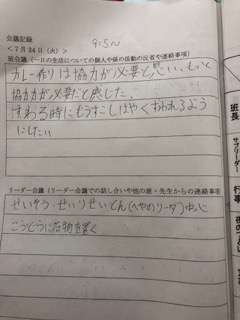 会議記録
<7月24日(火)>
班会議(一日の生活についての個人や係の活動の反省や連絡事項)
カレー作りは協力が必要と思い、もっと
協力が必要だと感じた。
すわる時にもうすこしはやくすわれるよう
にしたい
リーダー会議(リーダー会議での話し合いや他の班・先生からの連絡事項
せいそう・せいりせいとん(へやのリーダ)中心に
こうどうに荷物を置く
班長
サブリーダー
行事